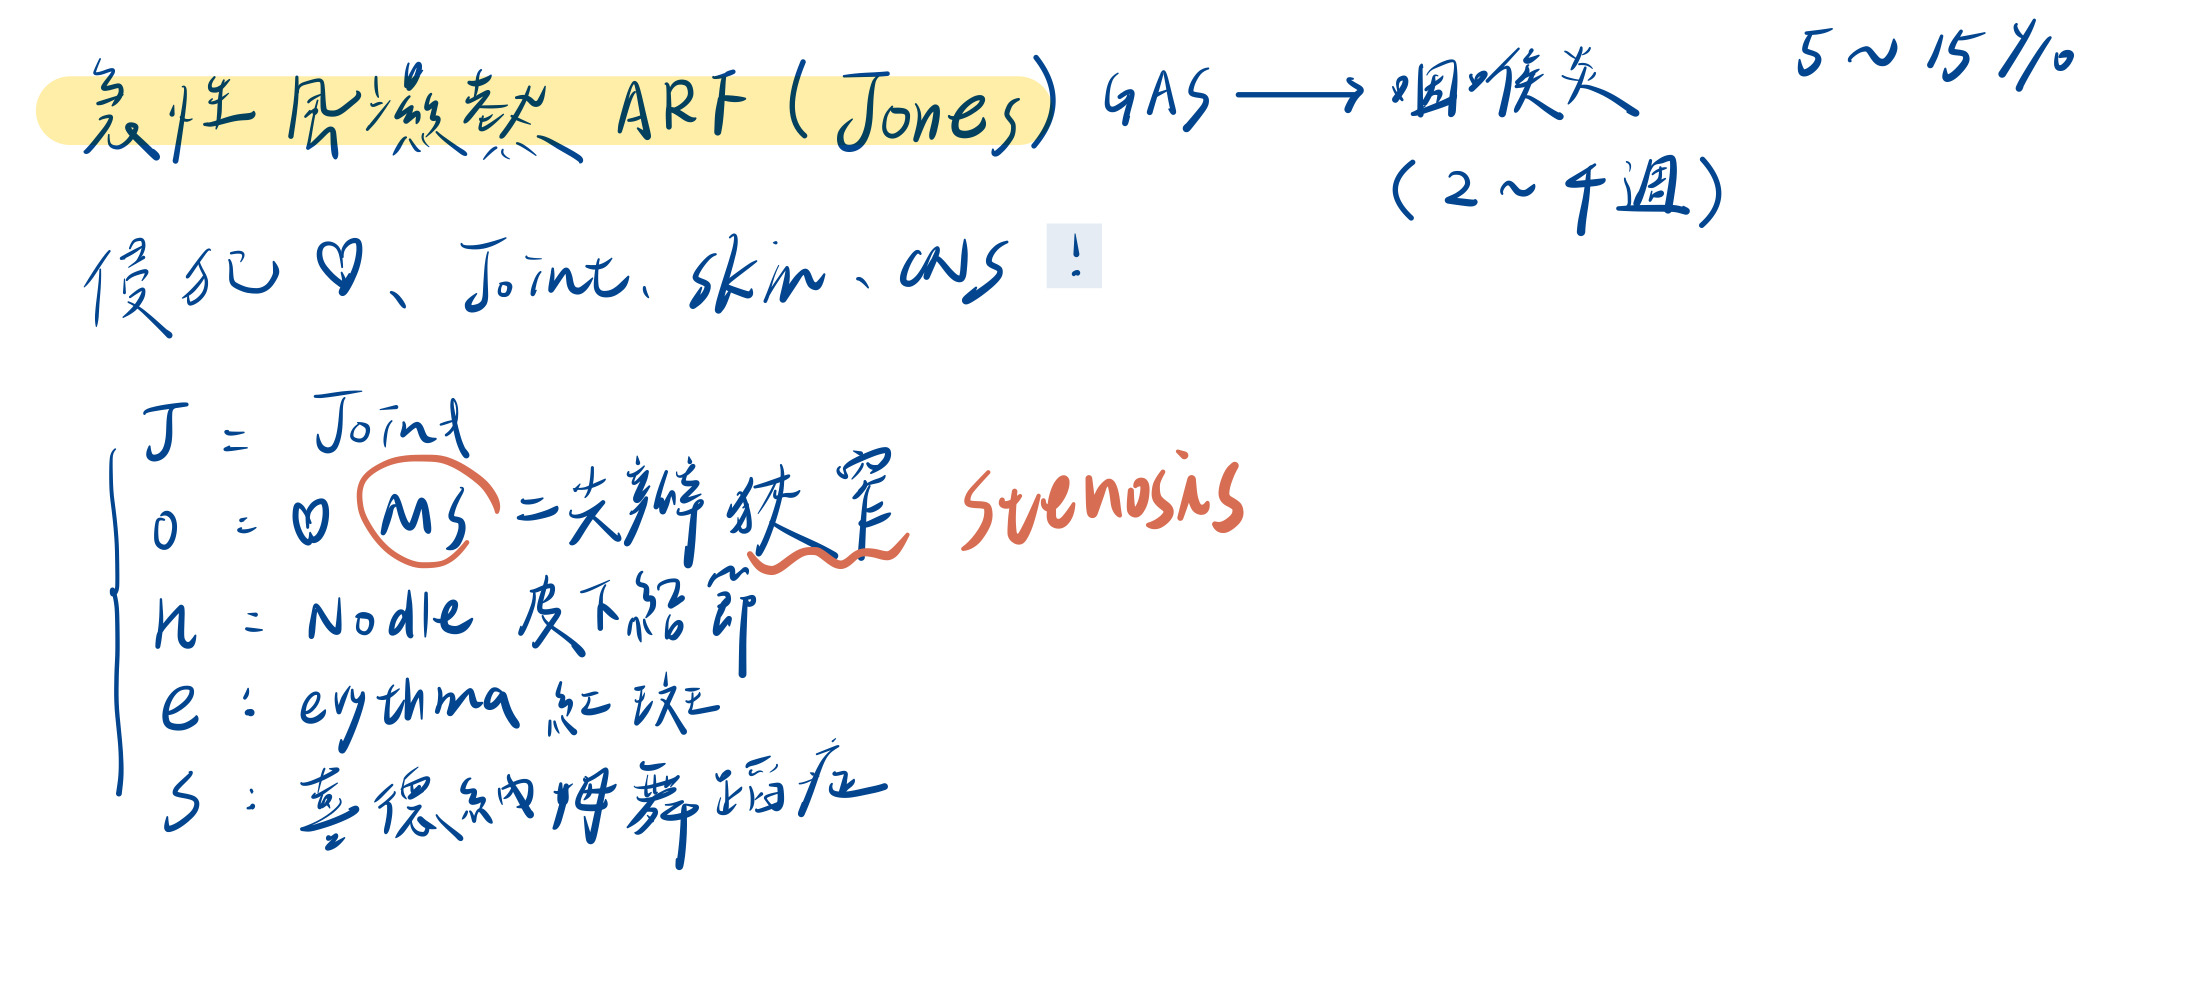 急性風濕熱 ARF (Jones) GAS → 咽喉炎 5~15%
(2~4週)
侵犯 ♡、Joint、skin、CNS !
J = Joint
o = ♡ MS 二尖瓣狹窄 stenosis
n : Nodle 皮下結節
e : erythma 紅斑
S : 喜德納姆舞蹈症